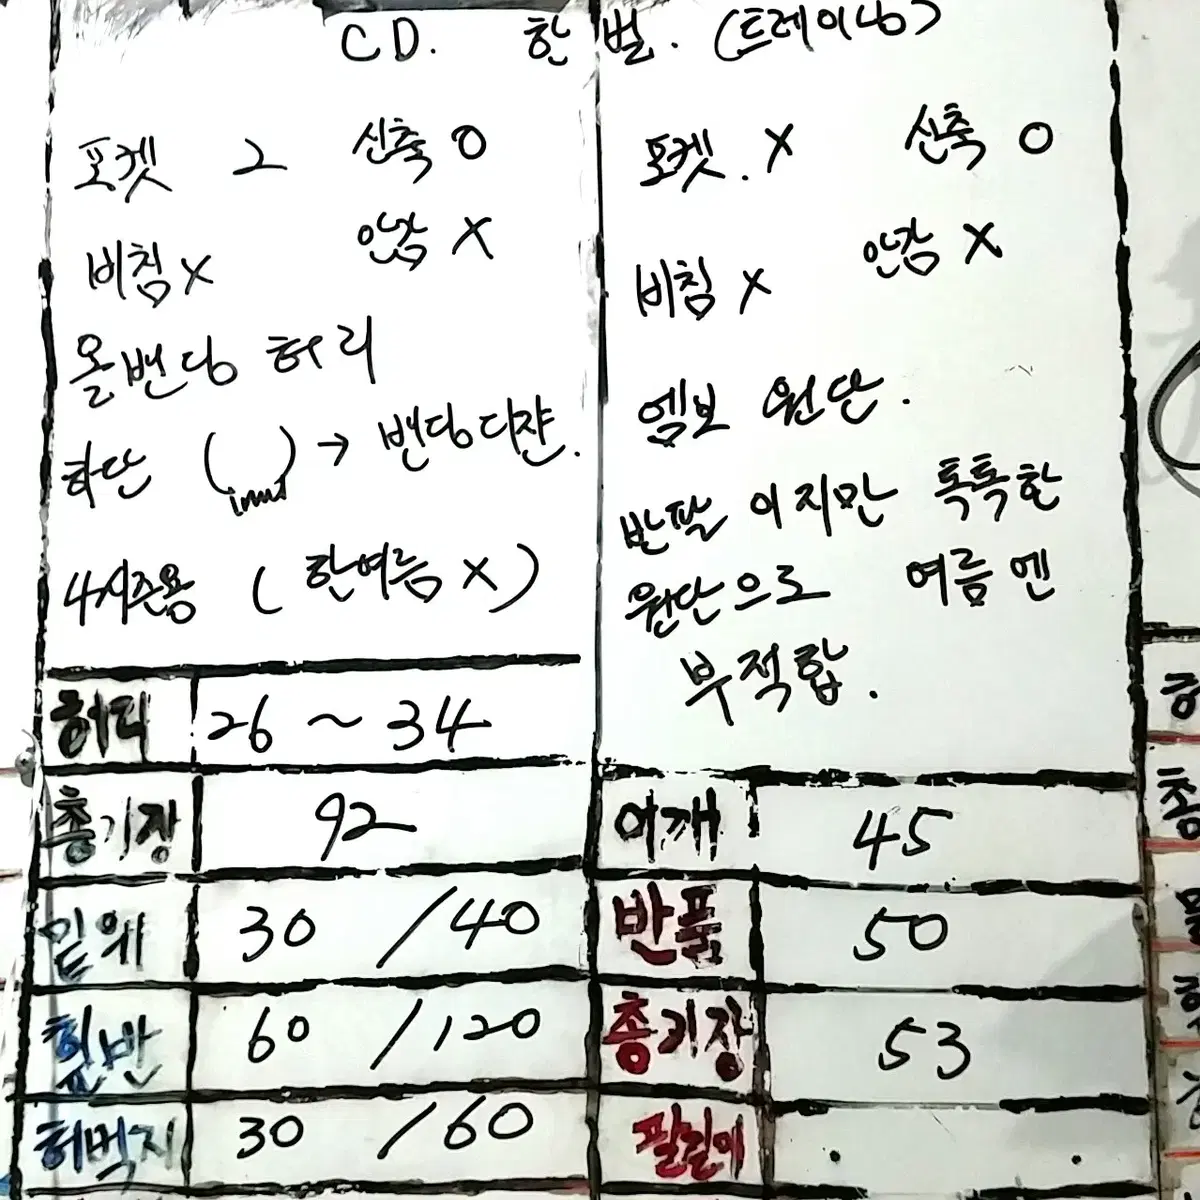 CD. 한 벌. (트레이닝)
포켓 2 신축 O
비침 X 안감 X
올밴딩 허리
하단 ( ) → 밴딩 디쟌.
4시즌용 ( 한여름 X )
허리 26 ~ 34
총기장 92
밑위 30 / 40
힙반 60 / 120
허벅지 30 / 60
포켓. X 신축 O
비침 X 안감 X
엠보 원단.
반팔 이지만 톡톡한
원단으로 여름엔
부적합.
어깨 45
반품 50
총기장 53
팔길이